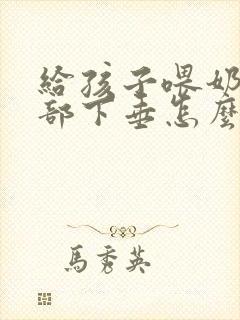 給孩子喂奶
部下垂怎麼
馬秀英